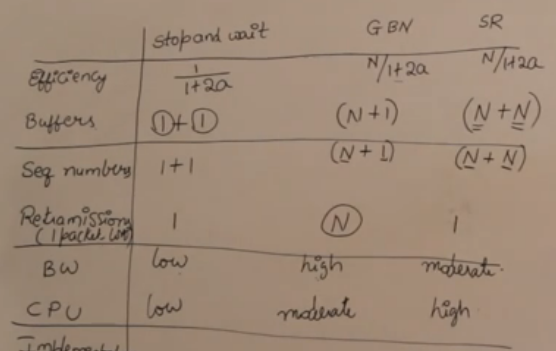 Stop and wait GBN SR
Efficiency 1/1+2a N/1+2a N/1+2a
Buffers 1+1 (N+1) (N+N)
Seq numbers 1+1 (N+1) (N+N)
Retramissions 1 N 1
(1 packet lost)
BW low high moderate.
CPU low moderate high